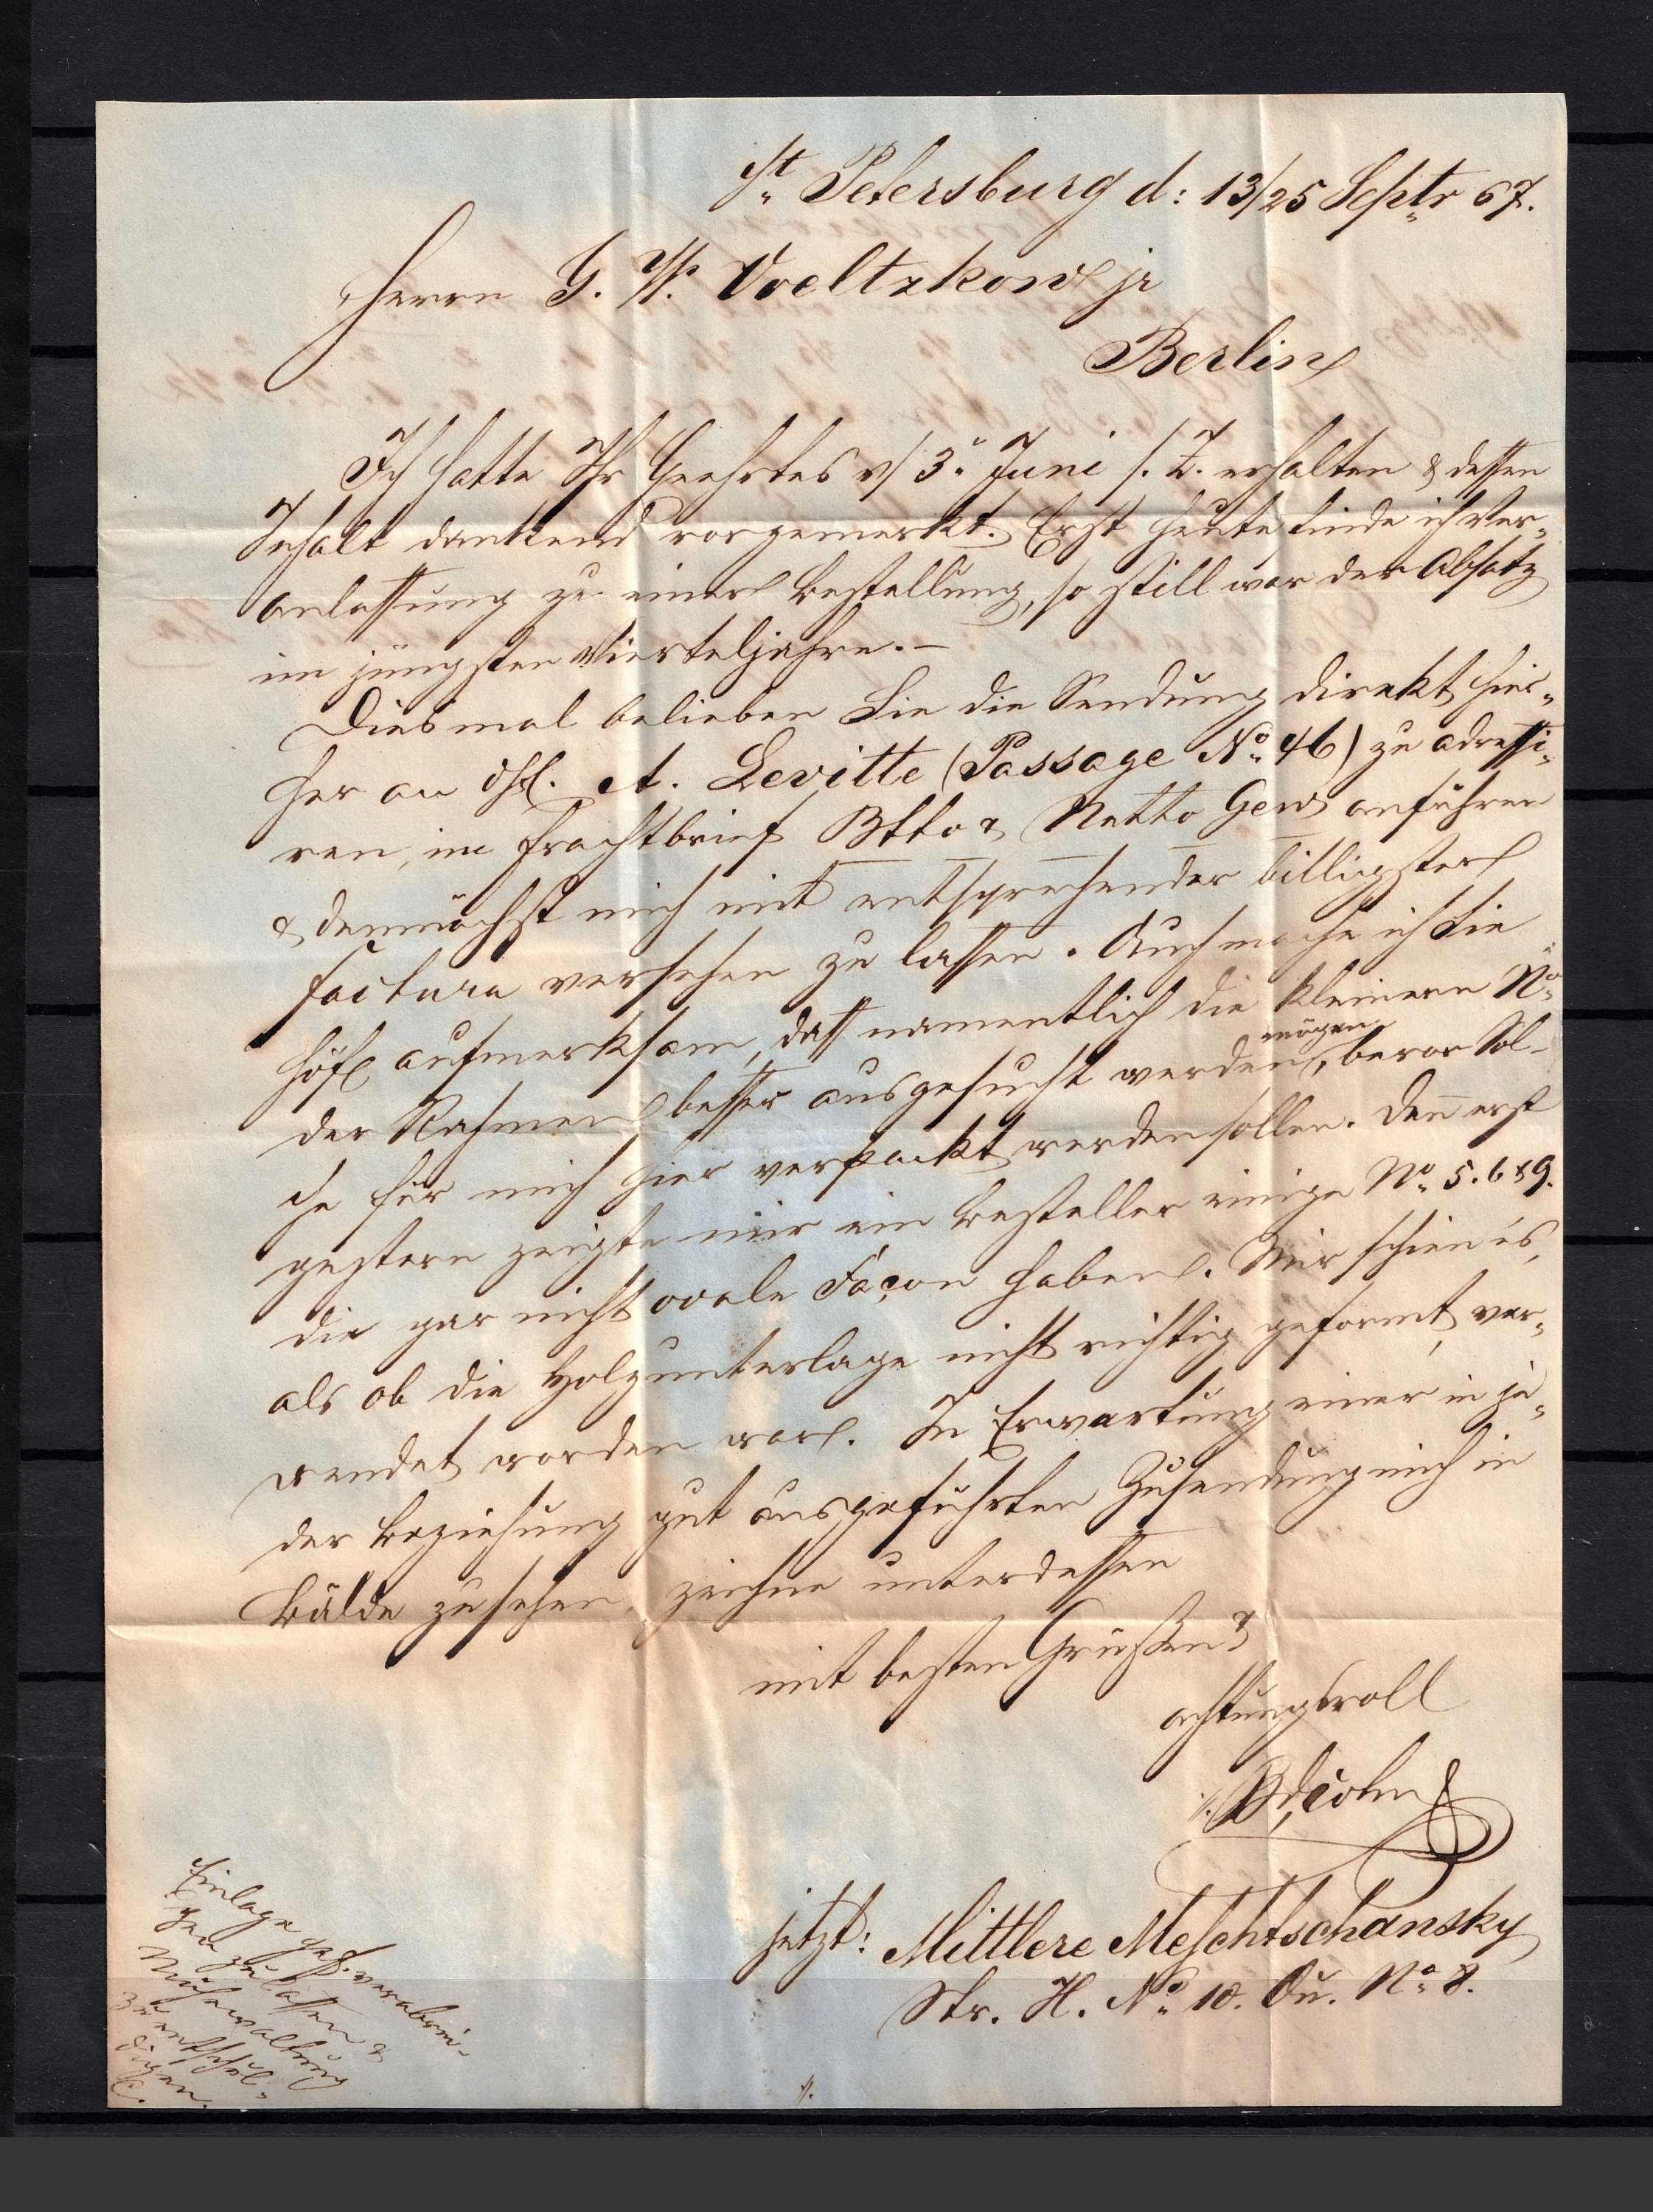 St. Petersburg d: 13/25 Septr 67.
Herrn G. W. Voeltzkow jr
Berlin
Ich hatte Ihr Geehrtes v/ 3. Juni s. Z. erhalten & dessen
Inhalt dankend vorgemerkt. Erst heute finde ich Ver-
anlassung zu einer Bestellung, so still war der Absatz
im jüngsten Vierteljahre. –
Diesmal belieben Sie die Sendung direkt hier-
her an A. Levitte (Passage No. 46) zu adressi-
ren, im Frachtbrief Btto & Netto Gew anführen
& demnächst mich mit entsprechender billigster
Factura versehen zu lassen. Auch mache ich Sie
höfl aufmerksam, dass namentlich die kleinern No.
der Rahmen besser ausgesucht werden mögen, bevor Sol-
che für mich hier verpackt werden sollen. Denn erst
gestern zeigte mir ein Besteller einige No. 5. 6 & 9.
die gar nicht ovale Façon haben. Mir schien es,
als ob die Holzunterlage nicht richtig geformt, ver-
wendet worden war. In Erwartung einer in je-
der Beziehung gut ausgeführten Zusendung mich in
Bälde zu sehen, zeichne unterdessen
mit besten Grüßen &
achtungsvoll
Cohn
jetzt: Mittlere Meschtschansky
Str. H. No. 10. Qu. No. 8.
Einlage gef. verabrei-
chen zu lassen &
Mühewaltung
zu entschul-
digen.
C.